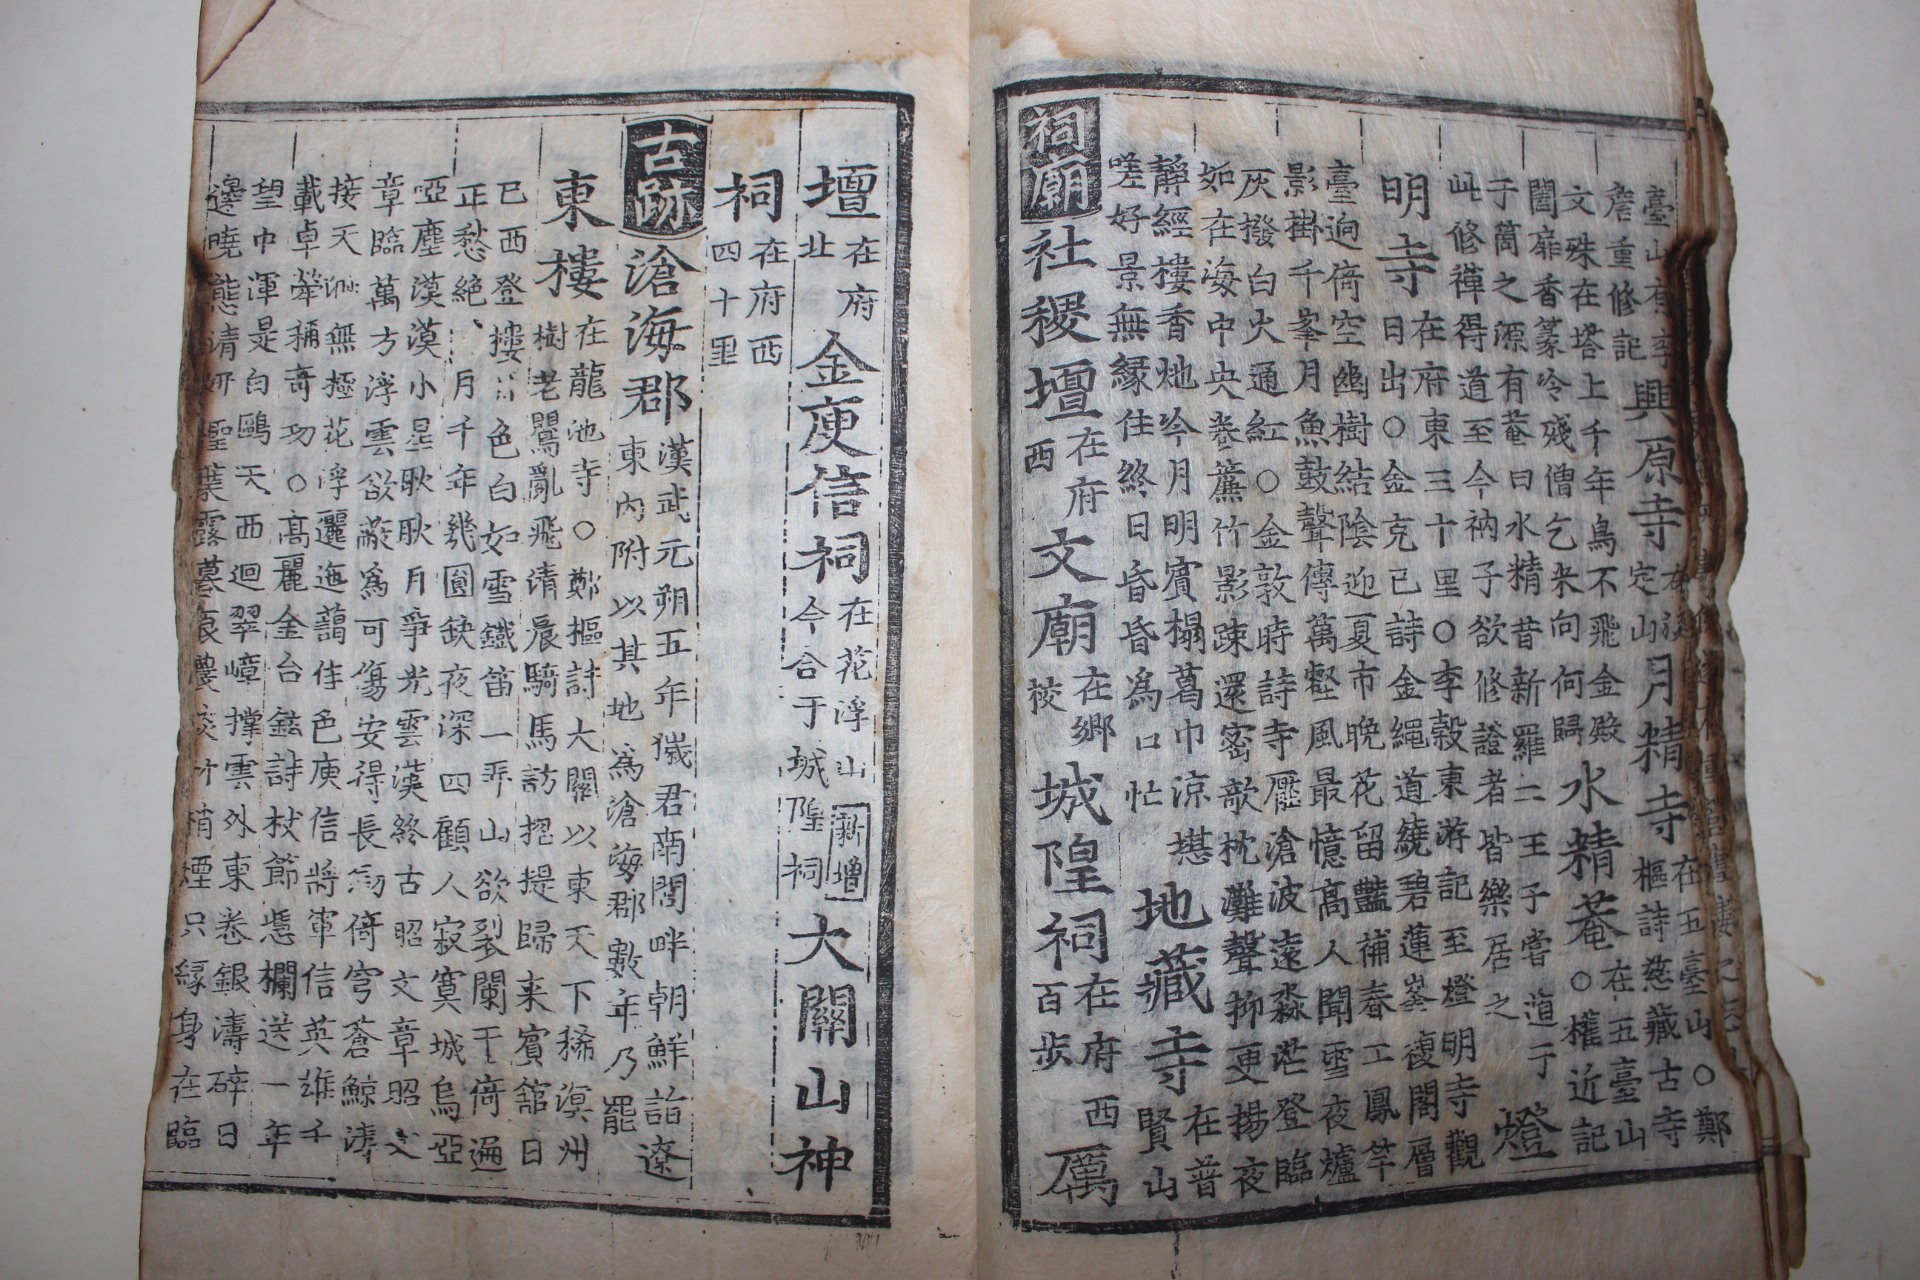 臺山有李
詹重修記
興原寺
定山
月精寺
在五臺山○鄭
樞詩慈藏古寺
文珠在塔上千年鳥不飛金殿
闔扉香篆冷殘僧乞米向何歸
水精菴
在五臺山
○權近記
于筒之源有菴曰水精昔新羅二王子嘗遁于
此修禪得道至今衲子欲修證者皆樂居之
燈
明寺
在府東三十里○李穀東游記至燈明寺觀
日出○金克己詩金繩道繞碧蓮峯複閣層
臺逈倚空幽樹結陰迎夏市晚花留豔補春工鳳竿
影掛千峯月魚鼓聲傳萬壑風最憶高人聞雪夜爐
灰撥白火通紅○金敦時詩寺壓滄波遠淼茫登臨
如在海中央卷簾竹影踈還密欹枕灘聲抑更揚夜
靜經樓香灺冷月明賓榻葛巾涼堪
嗟好景無緣住終日昏昏爲口忙
地藏寺
在普
賢山
祠廟
社稷壇
在府
西
文廟
在鄉
校
城隍祠
在府西
百步
厲
壇
在府
北
金庾信祠
在花浮山新增
今合于城隍祠
大關山神
祠
在府西
四十里
古跡
滄海郡
漢武元朔五年獩君南閭畔朝鮮詣遼
東內附以其地爲滄海郡數年乃罷
東樓
在龍池寺○鄭樞詩大關以東天下稀溟州
樹老鸎亂飛清晨騎馬訪招提歸來賓舘日
已西登樓色白如雪鐵笛一弄山欲裂闌干倚遍
正愁絕月千年幾圓缺夜深四顧人寂寞城烏亞
啞塵漠漠小星耿耿月爭光雲漢終古昭文章昭文
章臨萬方浮雲欲蔽爲可傷安得長劒倚穹蒼鯨濤
接天渺無極花浮邐迤藹佳色庾信將軍信英雄千
載卓犖稱奇功○高麗金台鉉詩杖節憑欄送一年
望中渾是白鷗天西迴翠嶂撐雲外東卷銀濤碎日
邊曉態清妍葉露暮痕濃淡竹梢煙只緣身在臨